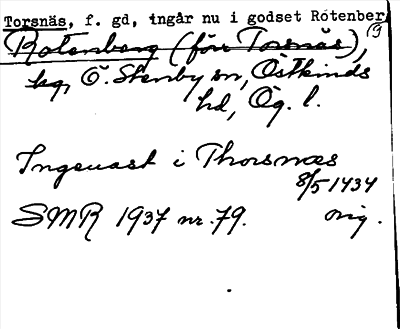 Torsnäs, f. gd, ingår nu i godset Rotenber
Rotenberg (förr Torsnäs),
hg, Ö. Stenby sn, Östkinds
hd, Ög. l.
Ingeuast i Thorsnæs
8/5 1434
SMR 1937 nr. 79. orig.